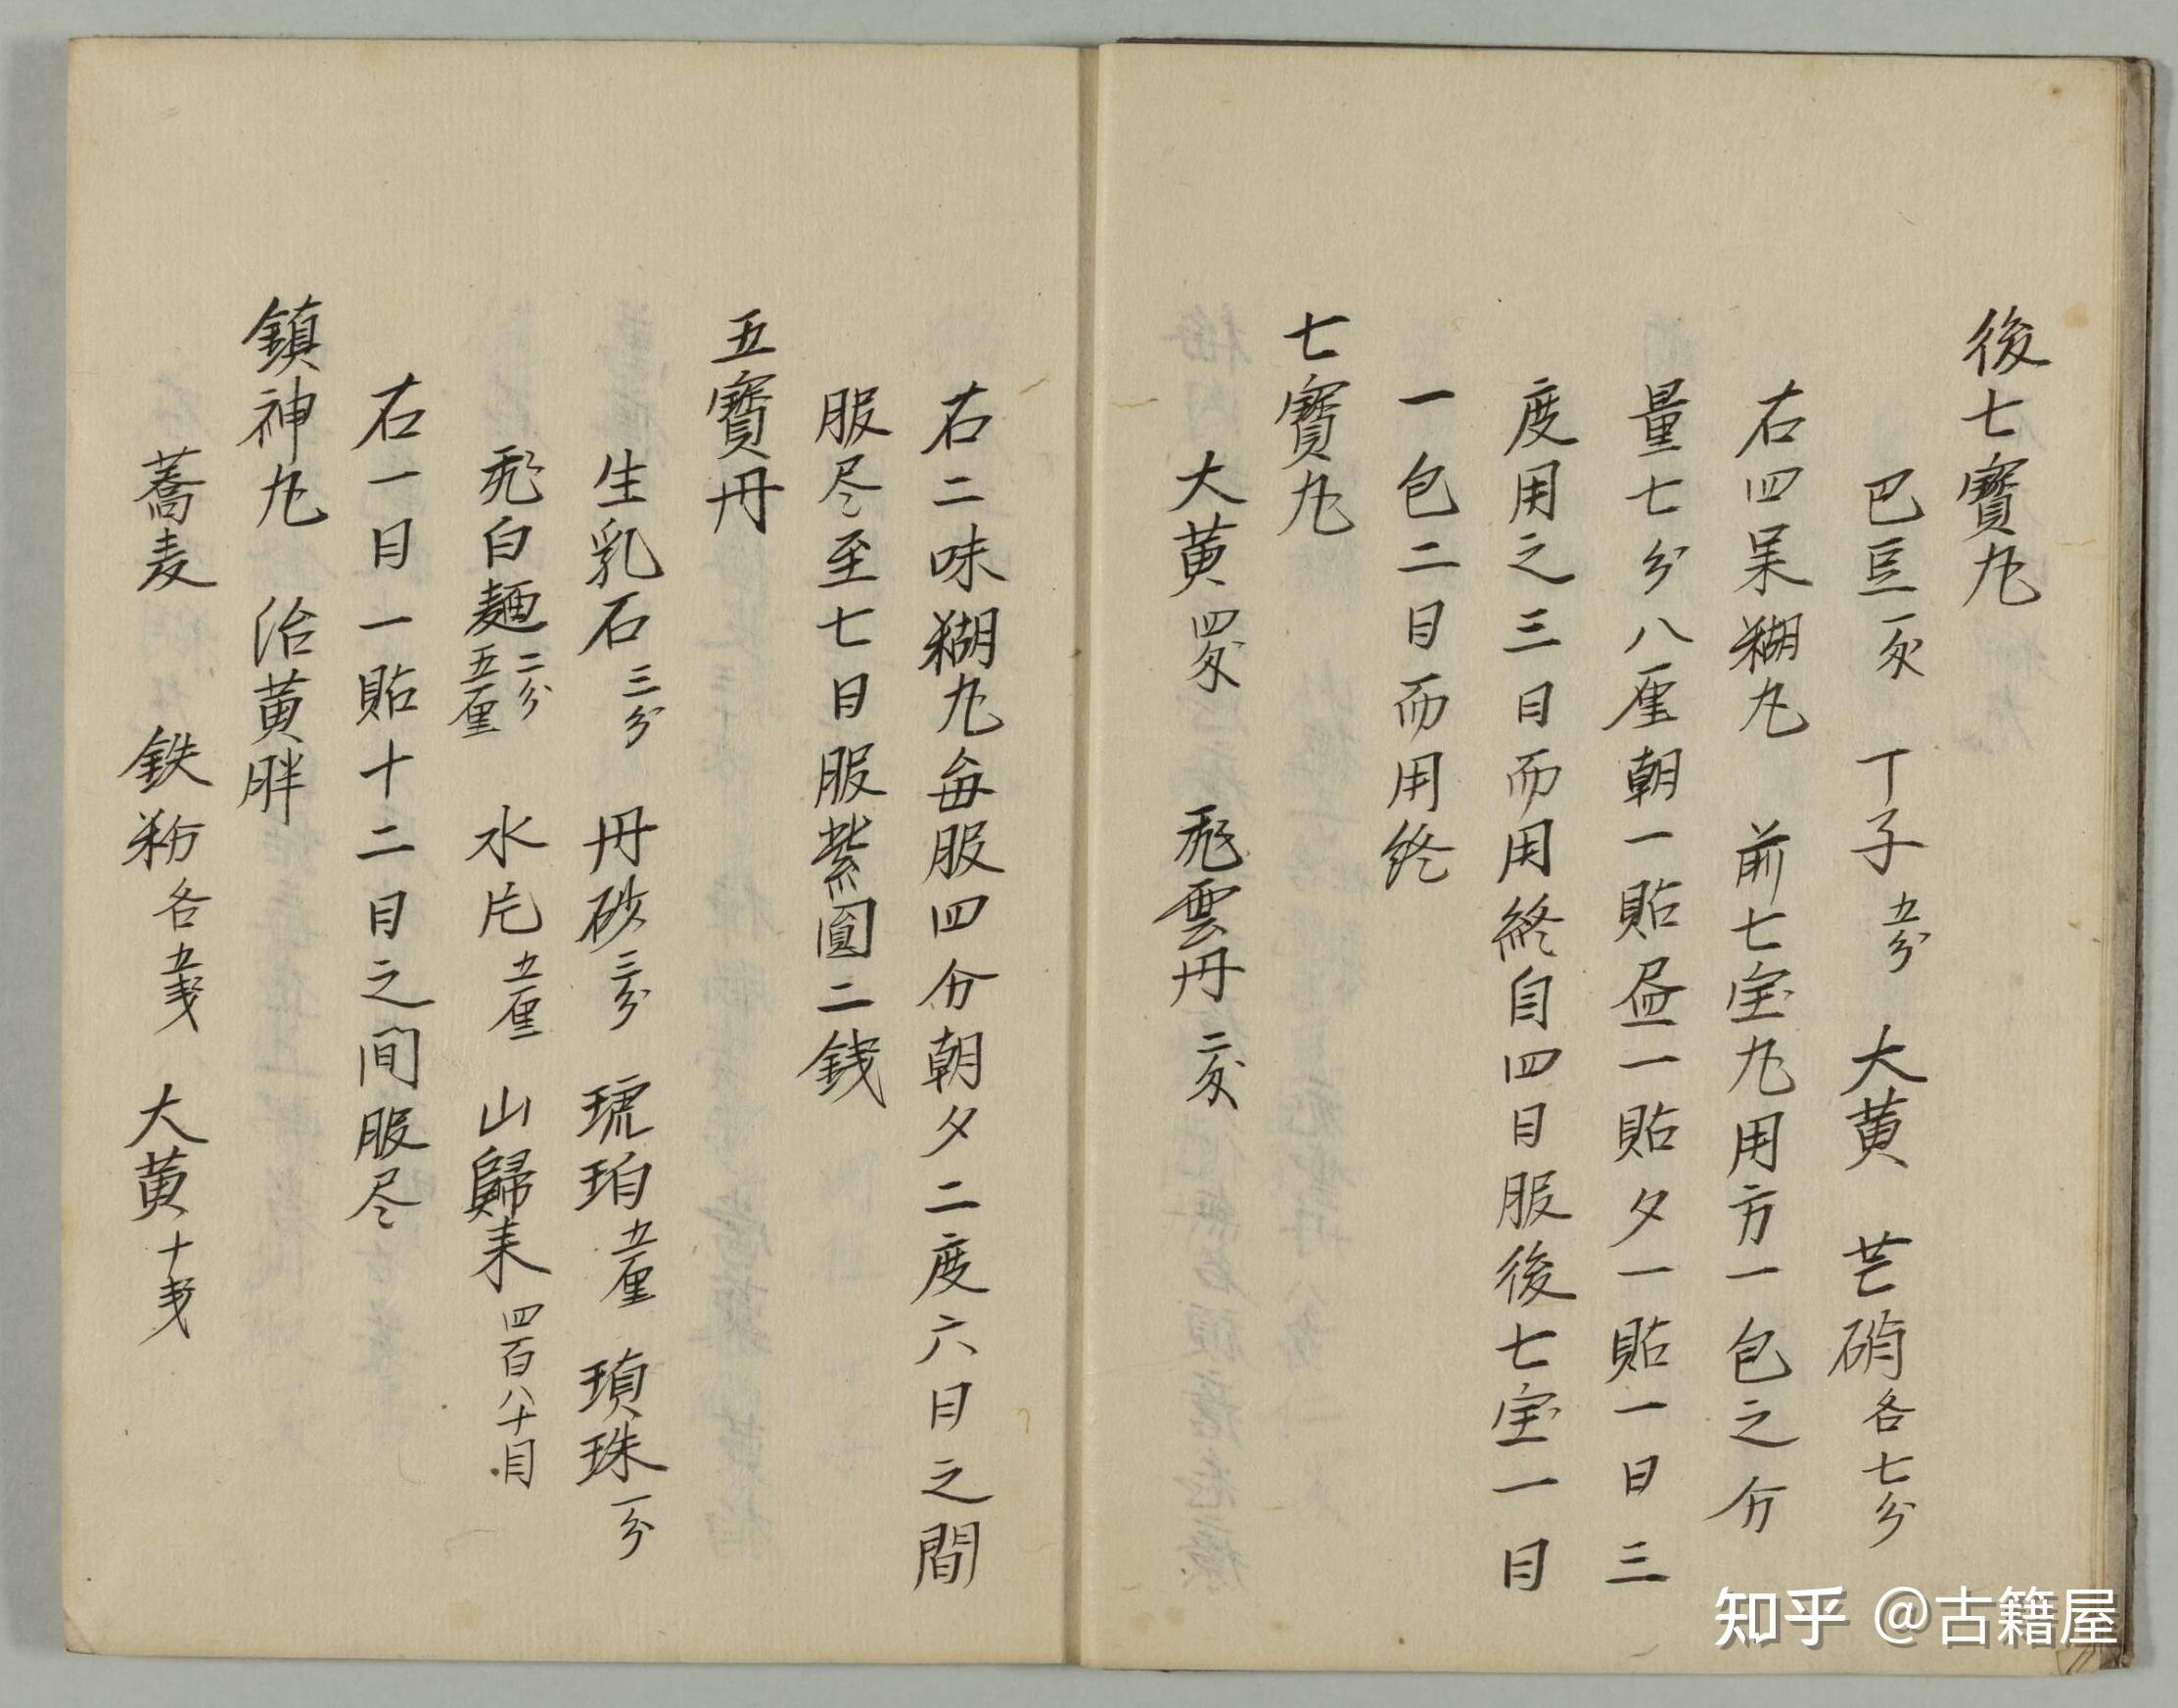 後七寳丸
巴豆一匁 丁子五分 大黄 芒硝各七分
右四味糊丸 前七宝丸用方一包之分
量七分八厘朝一貼昼一貼夕一貼一日三
度用之三日而用終自四日服後七宝一日
一包二日而用終
七寳丸
大黄四匁 飛雲丹二匁
右二味糊丸毎服四分朝夕二度六日之間
服尽至七日服紫圓二錢
五寳丹
生乳石三分 丹砂三分 琥珀五厘 真珠一分
飛白麺二分五厘 水片五厘 山歸来四百八十目
右一日一貼十二日之间服尽
鎮神丸 治黄胖
蕎麦 鉄粉各五戔 大黄十戔
知乎 @古籍屋